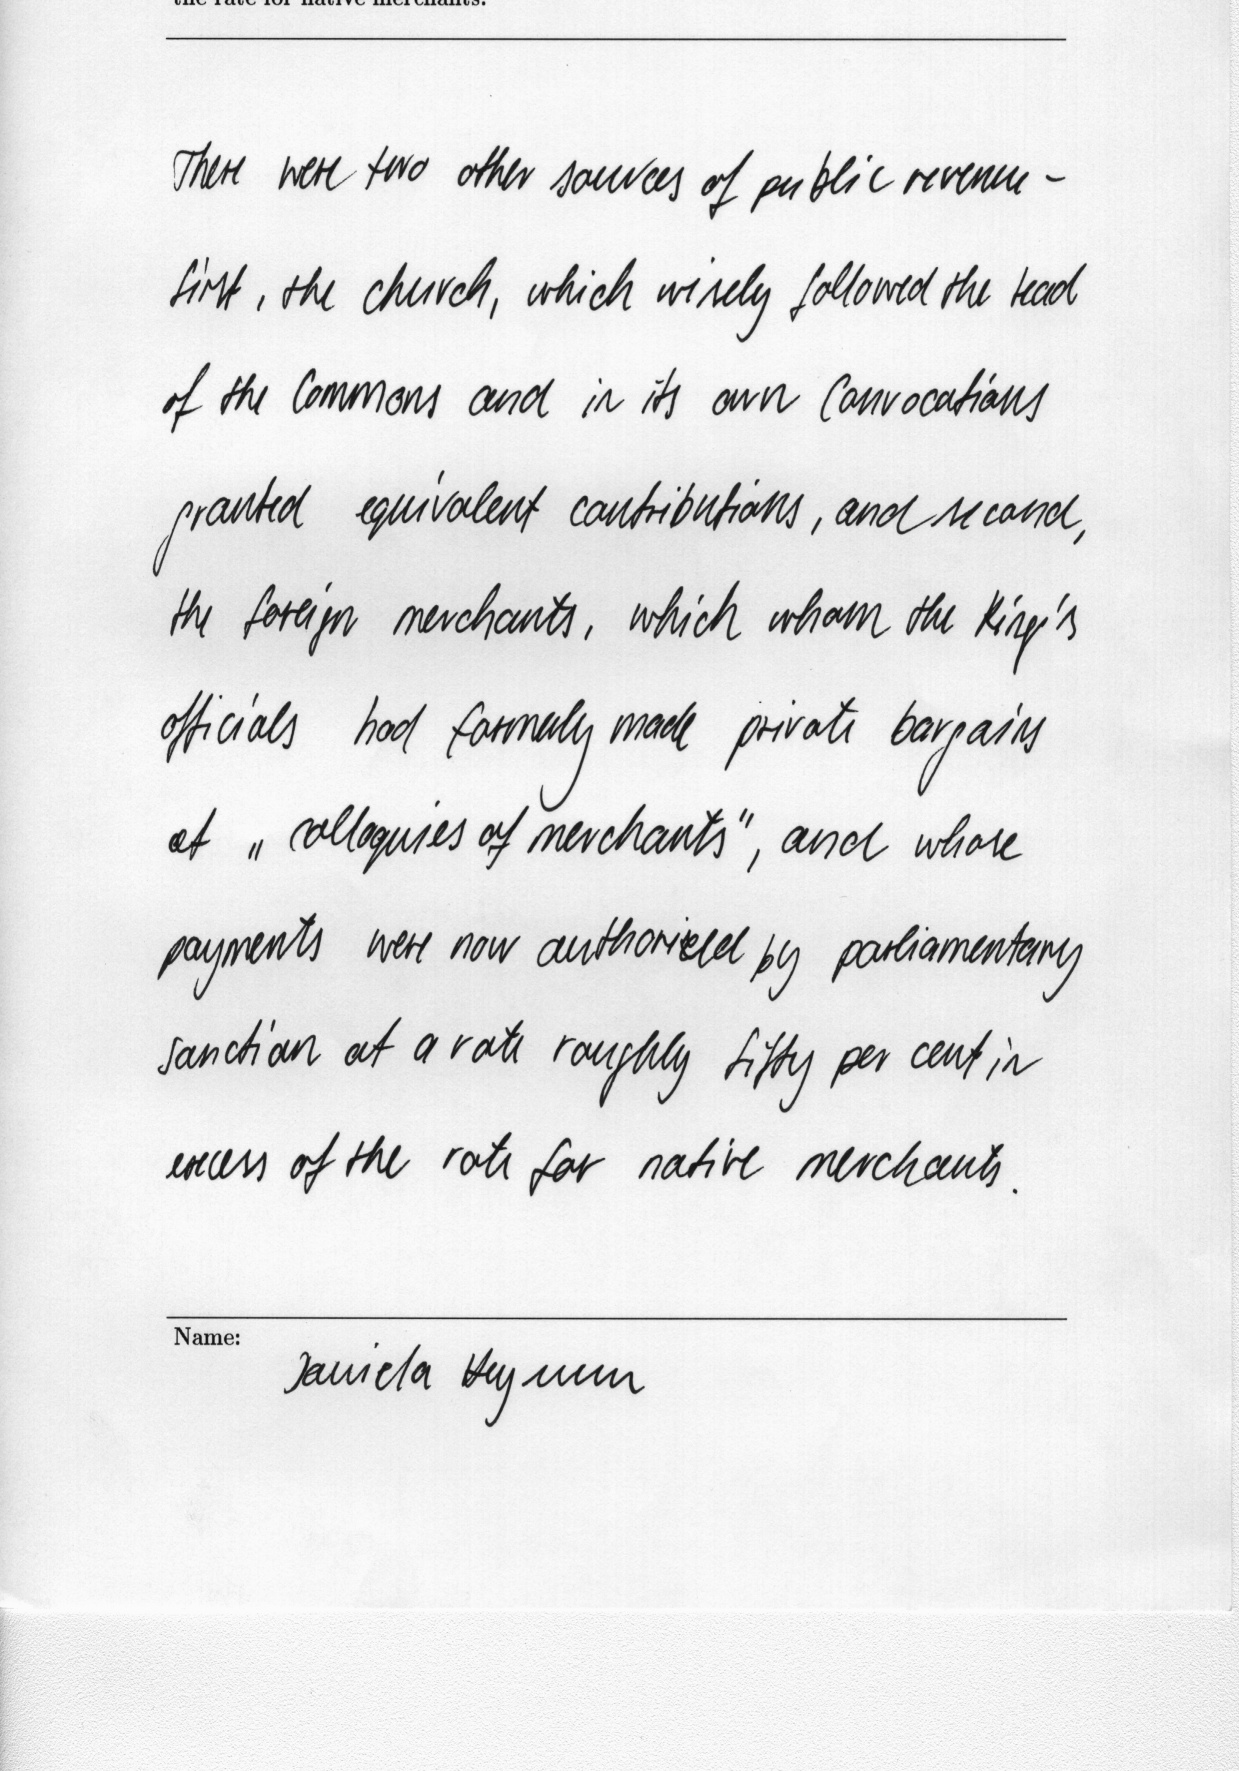 the rate for native merchants.
There were two other sources of public revenue -
first, the church, which wisely followed the lead
of the Commons and in its own Convocations
granted equivalent contributions, and second,
the foreign merchants, which wham the King's
officials had formerly made private bargains
at „ colloquies of merchants", and whose
payments were now authorized by parliamentary
sanction at a rate roughly fifty per cent in
excess of the rate for native merchants.
Name:
Daniela